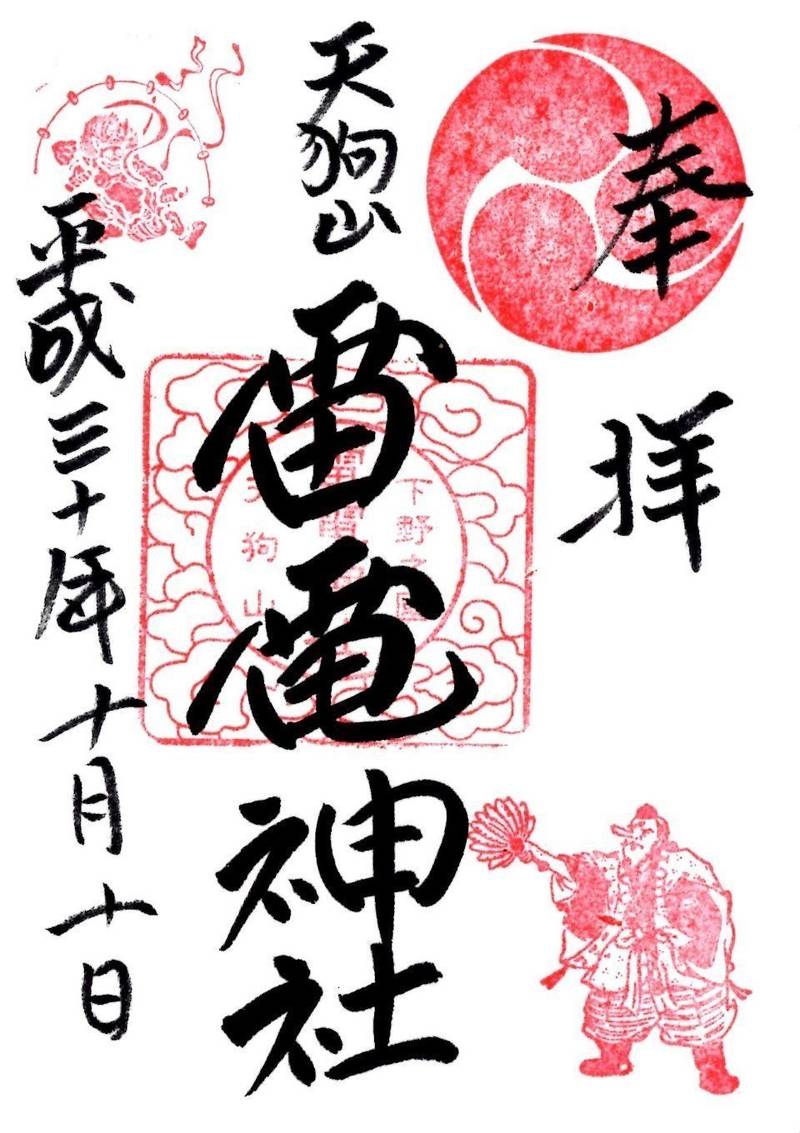 奉拝
天狗山
雷電神社
平成三十年十月十日
下野之國
天狗山